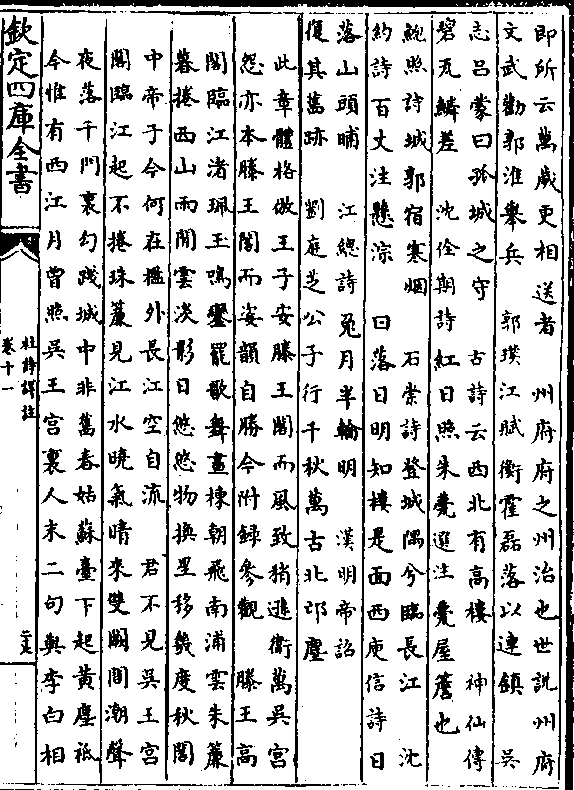 即所云萬歲更相送者　州府府之州治也世說州府
文武勸郭淮舉兵　郭璞江賦衡霍磊落以連鎮　吳
志呂蒙曰孤城之守　古詩云西北有高樓　神仙傳
碧瓦鱗差　沈佺期詩紅日照朱甍選注甍屋簷也
鮑照詩城郭宿寒烟　石崇詩登城隅兮臨長江　沈
約詩百丈注懸淙　曰落日明知樓是面西庾信詩日
落山頭晡　江總詩兔月半輪明　漢明帝詔
復其舊跡　劉庭芝公子行千秋萬古北邙塵
此章體格倣王子安滕王閣而風致稍遜衛萬吳宮
怨亦本滕王閣而姿韻自勝今附錄參觀　滕王高
閣臨江渚珮玉鳴鑾罷歌舞畫棟朝飛南浦雲朱簾
暮捲西山雨閒雲淡影日悠悠物換星移幾度秋閣
中帝子今何在檻外長江空自流　君不見吳王宮
閣臨江起不捲珠簾見江水曉氣晴來雙闕間潮聲
夜落千門裏勾踐城中非舊春姑蘇臺下起黃塵祗
今惟有西江月曾照吳王宮裏人末二句與李白相
欽定四庫全書
杜詩詳註
卷十一